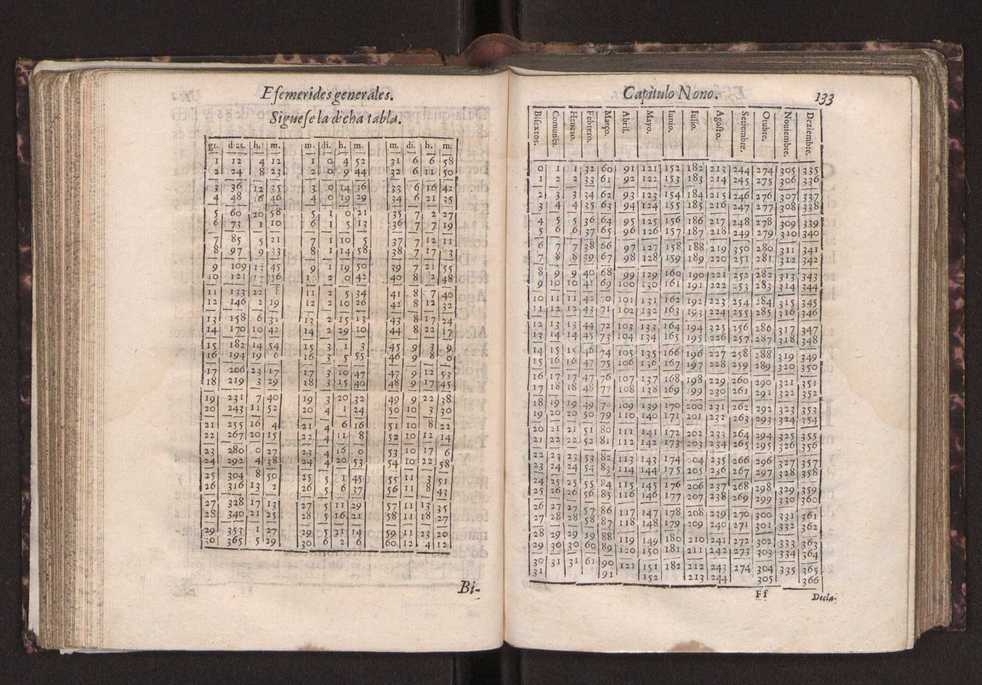 Efemerides generales.
Siguese la dicha tabla.
gr. h. m. m. di. h. m. m. di. h. m.
1 12 4 12 1 0 4 52 31 6 6 58
2 24 8 23 2 0 9 44 32 6 11 50
3 36 12 35 3 0 14 16 33 6 16 42
4 48 16 46 4 0 19 29 34 6 21 35
5 60 20 58 5 1 0 21 35 7 2 27
6 73 1 6 1 5 36 7 7 19
7 85 5 21 7 1 10 5 37 7 12 11
8 97 9 33 8 1 14 58 38 7 17
9 109 45 9 1 19 50 39 7 21 55
10 121 10 2 0 42 40 8 2 48
11 133 11 2 5 34 41 8 7 40
12 146 2 19 12 2 10 26 42 8 12
13 158 6 31 13 2 15 43 8 17
14 170 10 42 14 2 44 8 22
15 182 14 54 15 3 1 45 9 3 9
16 194 19 6 16 3 5 55 46 9 8 0
17 206 17 17 3 10 47 47 9 12
18 219 3 29 18 3 15 40 48 9 17 45
19 231 7 40 19 3 20 32 49 9 22 38
20 243 11 52 20 4 1 24 50 10 3 30
21 255 16 4 21 4 6 16 51 10 8
22 267 20 15 22 4 11 8 52 10 12 14
23 280 0 27 23 4 16 0 53 10 17
24 292 4 38 24 4 20 53 54 10 22 58
25 304 8 50 25 5 1 45 55 11 3 51
26 316 13 2 26 5 6 37 56 11 8 43
27 328 17 13 27 5 11 29 57 11 13 35
28 340 21 25 28 5 16 21 58 11 18
29 353 1 29 5 21 14 59 11 20
30 365 5 29 30 6 2 6 60 12 4 12
Bi-
Capitulo Nono. 133
Bisextos. Comunes. Henero. Febrero. Março. Abril. Mayo. Iunio. Iulio. Agosto. Setiembre. Otubre. Nouiembre. Deziembre.
0 1 1 32 60 91 121 152 182 213 244 274 305 335
1 2 2 33 61 92 122 153 183 214 245 275 306 336
2 3 3 34 62 93 123 154 184 215 246 276 307 337
3 4 4 35 63 94 124 155 185 216 247 277 308 338
4 5 5 36 64 95 125 156 186 217 248 278 309 339
5 6 6 37 65 96 126 157 187 218 249 279 310 340
6 7 7 38 66 97 127 158 188 219 250 280 311 341
7 8 8 39 67 98 128 159 189 220 251 281 312 342
8 9 9 40 68 99 129 160 190 221 252 282 313 343
9 10 10 41 69 100 130 161 191 222 253 283 314 344
10 11 11 42 70 101 131 162 192 223 254 284 315 345
11 12 12 43 71 102 132 163 193 224 255 285 316 346
12 13 13 44 72 103 133 164 194 225 256 286 317 347
13 14 14 45 73 104 134 165 195 226 257 287 318 348
14 15 15 46 74 105 135 166 196 227 258 288 319 349
15 16 16 47 75 106 136 167 197 228 259 289 320 350
16 17 17 47 76 107 137 168 198 229 260 290 321 351
17 18 18 48 77 108 138 169 199 230 261 291 322 352
18 19 19 49 78 109 139 170 200 231 262 292 323 353
19 20 20 50 79 110 140 171 201 232 263 293 324 354
20 21 21 51 80 111 141 172 202 233 264 294 325 355
21 22 22 52 81 112 142 173 203 234 265 295 326 356
22 23 23 53 82 113 143 174 204 235 266 296 327 357
23 24 24 54 83 114 144 175 205 236 267 297 328 358
24 25 25 55 84 115 145 176 206 237 268 298 329 359
25 26 26 56 85 116 146 177 207 238 269 299 330 360
26 27 27 57 86 117 147 178 208 239 270 300 331 361
27 28 28 58 87 118 148 179 209 240 271 301 332 362
28 29 29 59 88 119 149 180 210 241 272 302 333 363
29 30 30 60 89 120 150 181 211 242 273 303 334 364
30 31 31 61 90 121 151 182 212 243 274 304 335 365
31 91 152 213 244 305 366
Ff Decla-